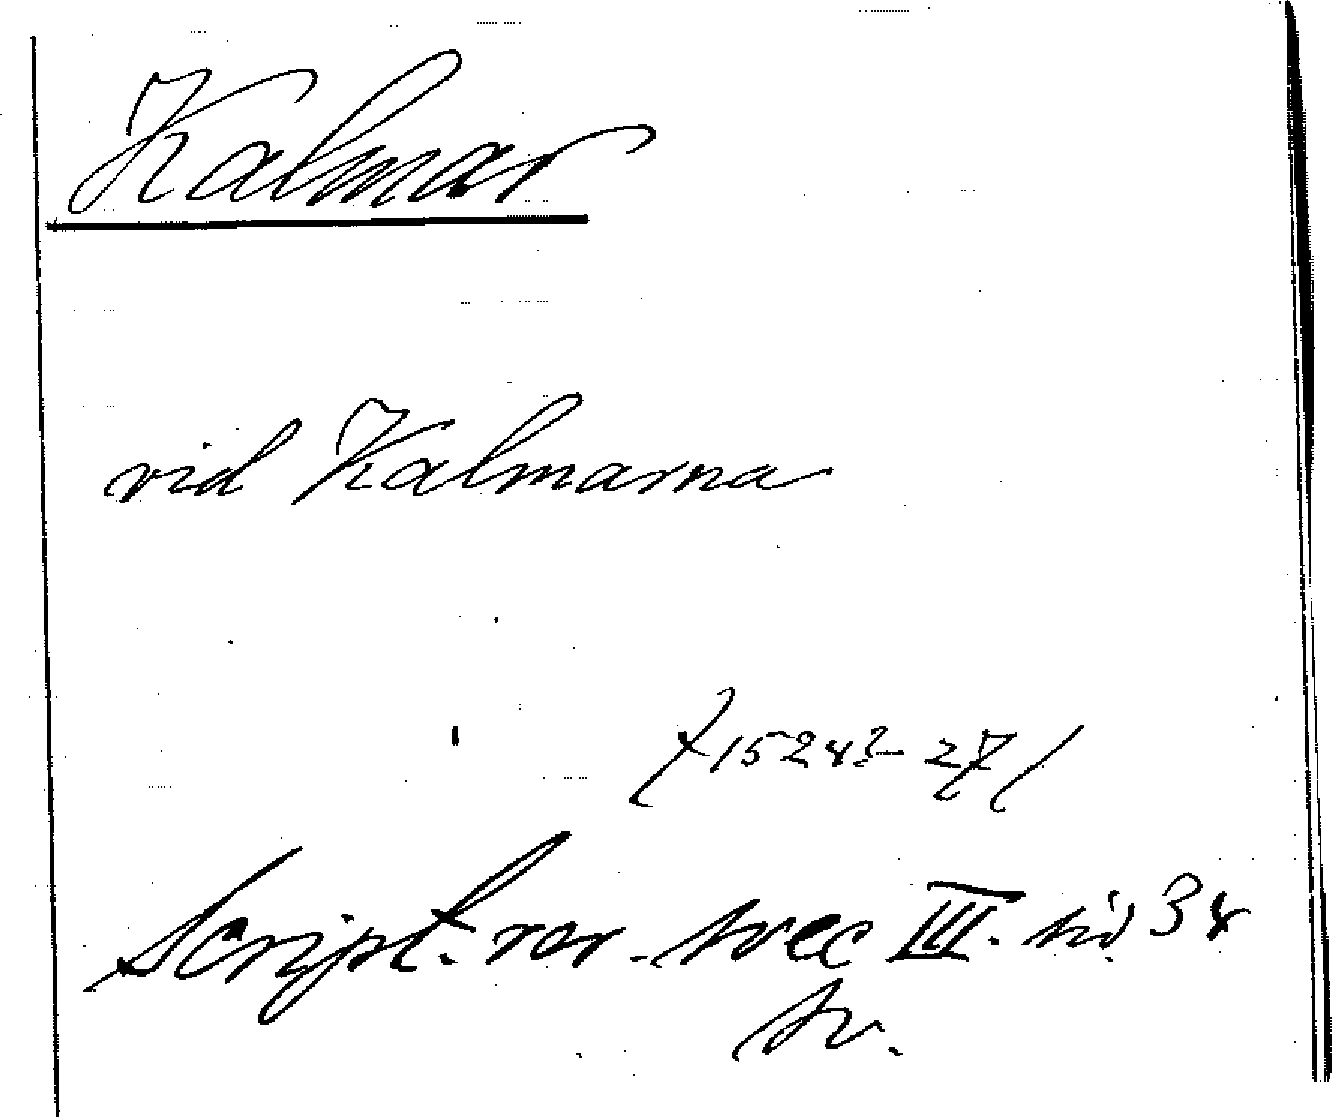 Kalmar
vid Kalmarna
/ 1524?-27 /
Script. rer. svec III. sid 34
sv.